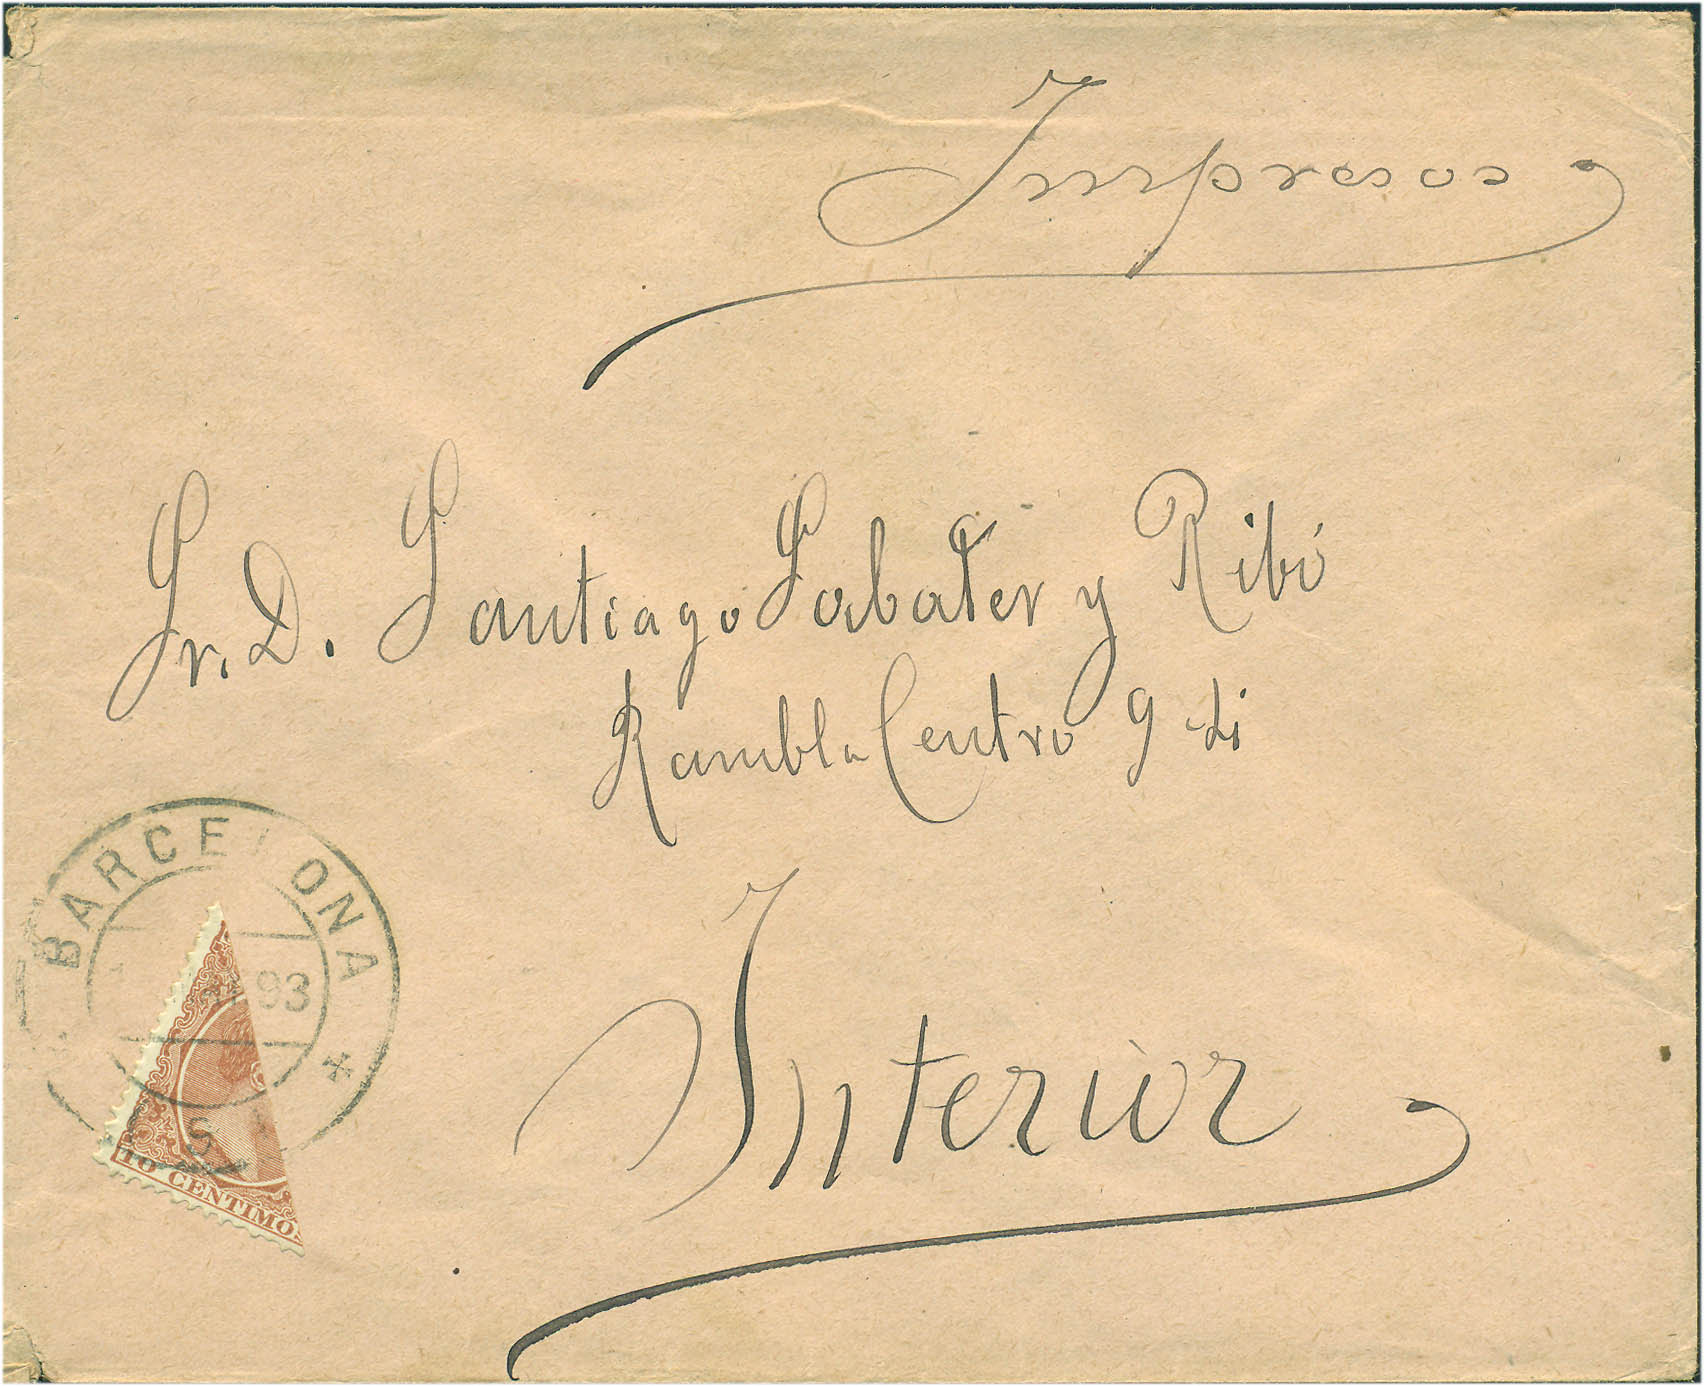 Impresos
Sr. D. Santiago Sabater y Ribó
Rambla Centro 9
Interior
BARCELONA
93
10 CENTIMOS